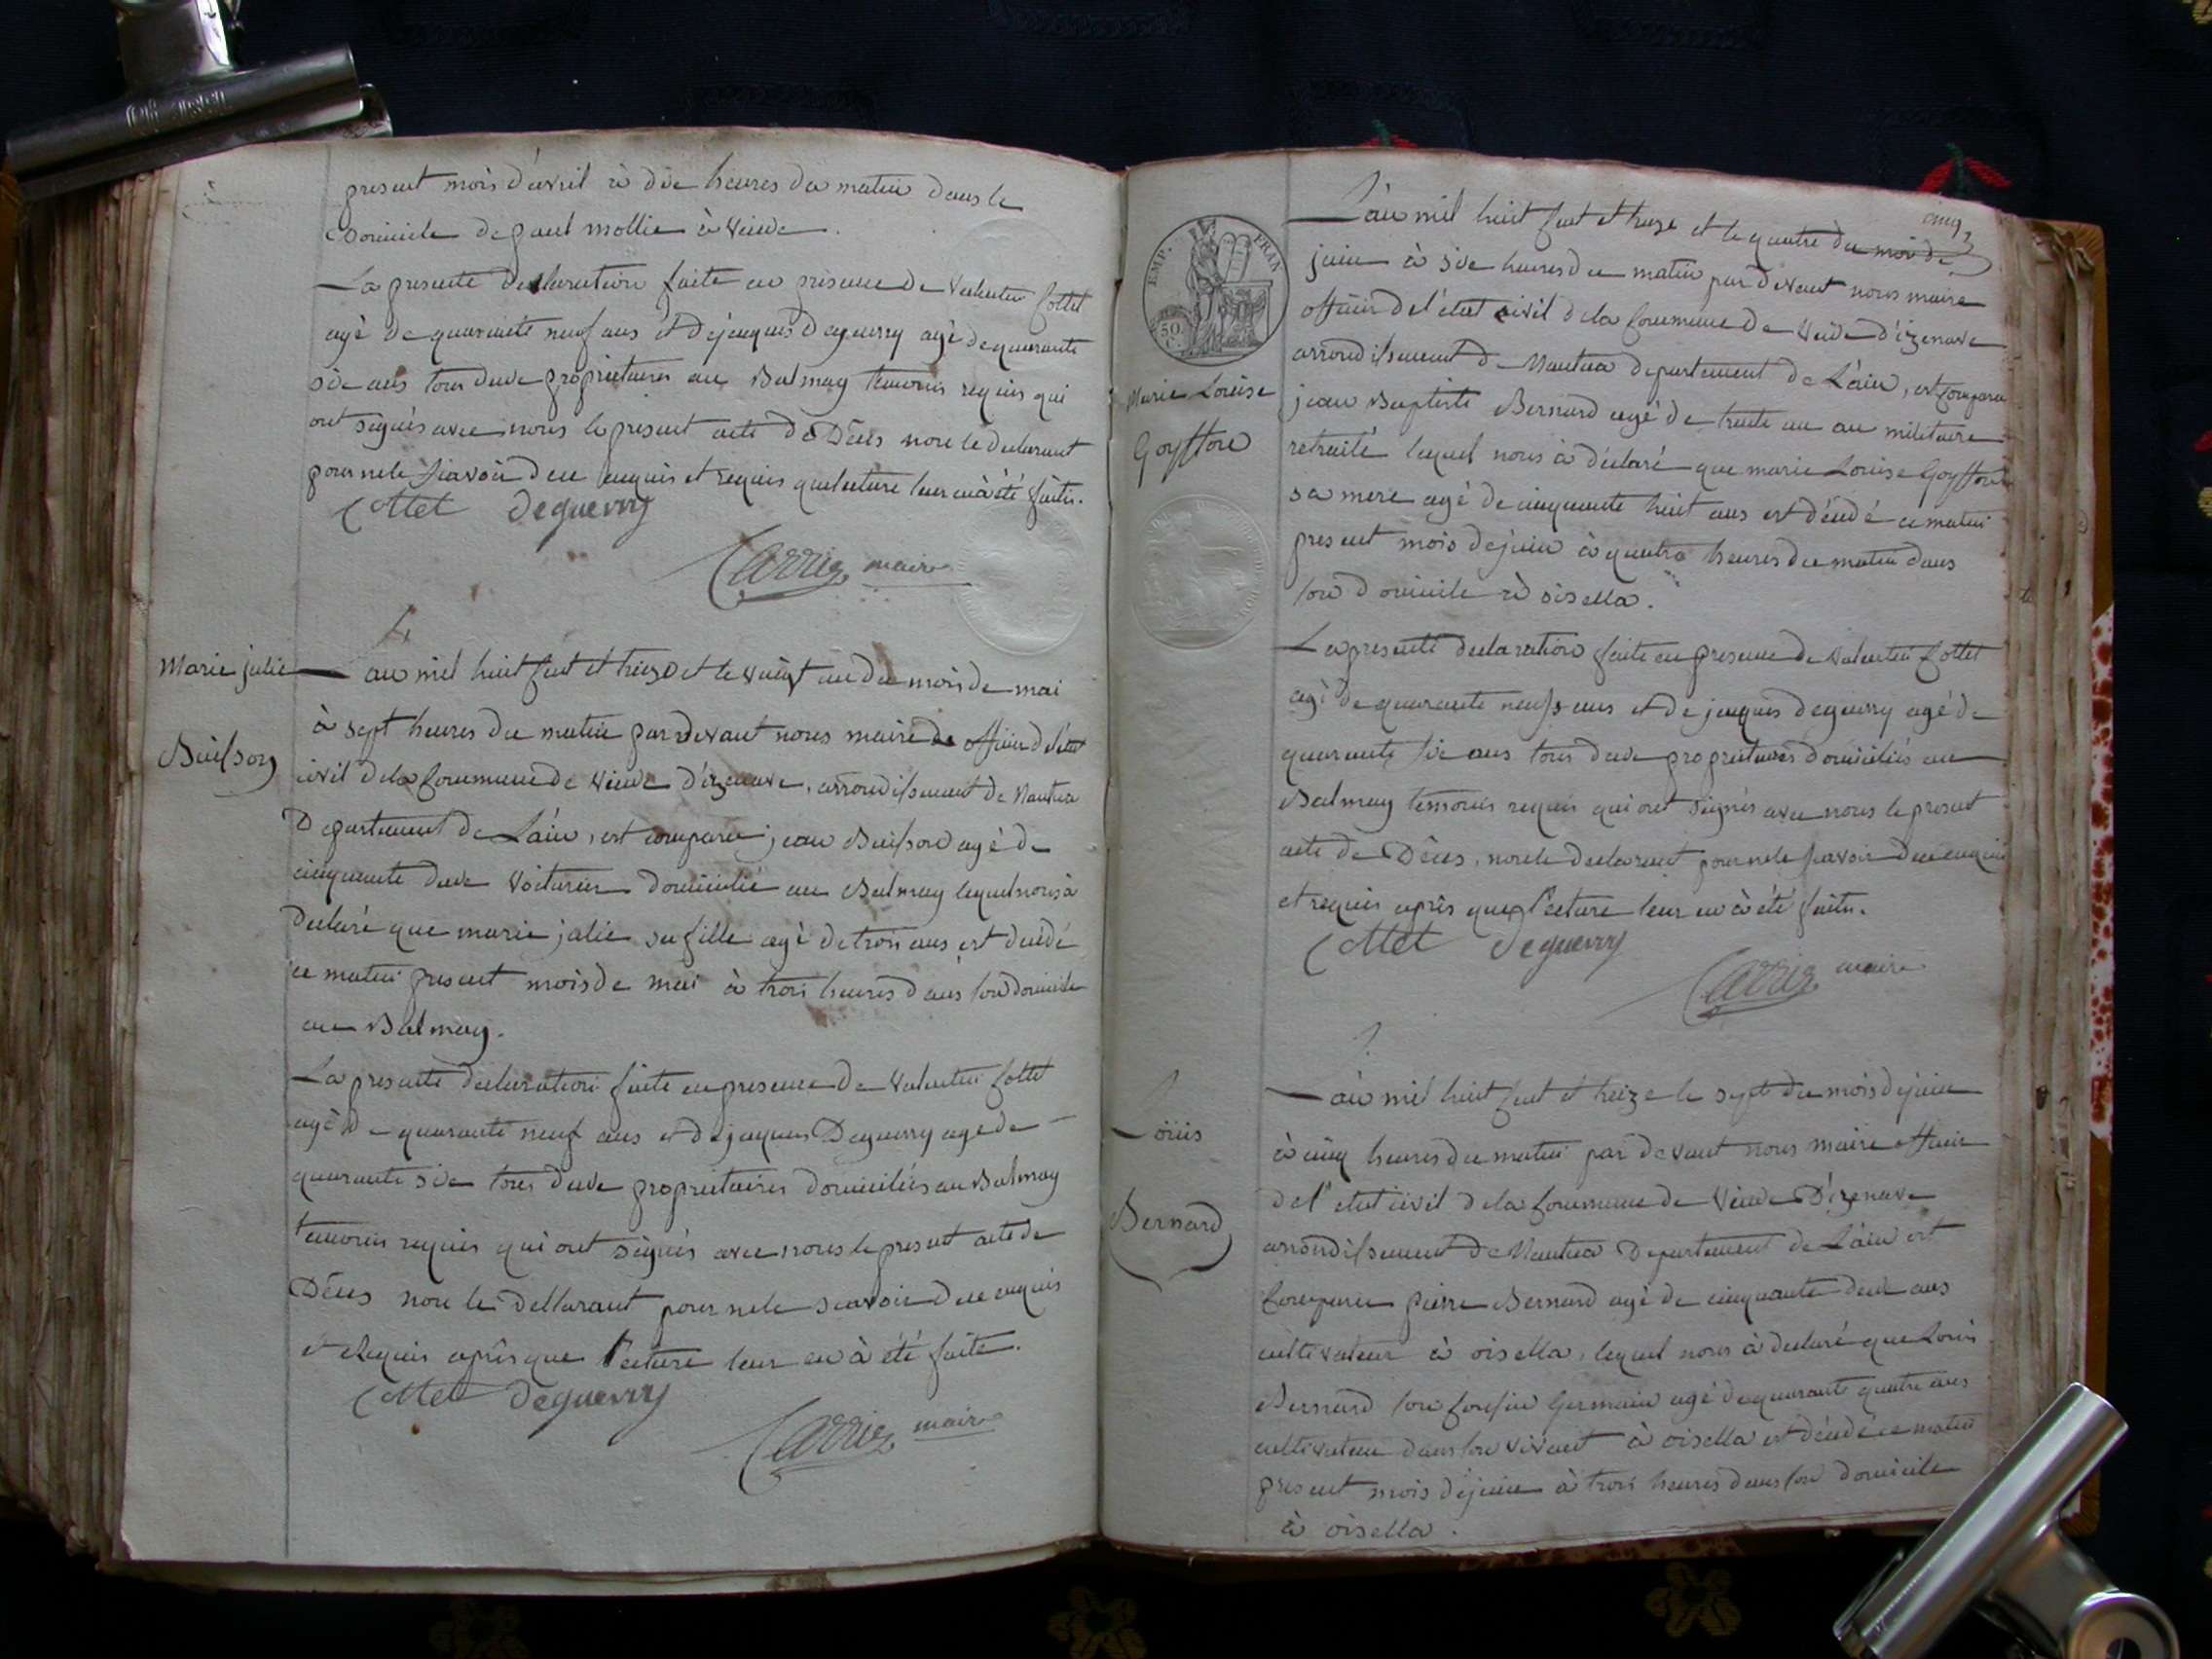 present mois d'avril à dix heures du matin dans le
Domicile de paul mollie à vieude.
La presente declaration faite en presence de valentin Cottet
agé de quarante neuf ans et de jaques Deguerry agé de quarante
six ans tous deux propriétaires au Balmay temoins requis qui
ont signés avec nous le present acte de Décès non le declarant
pour ne le sçavoir de ce enquis et requis que lecture leur en à été faite.
Cottet Deguerry
Carrier maire
Marie julie
Buisson
4
an mil huit cent et treize et le vingt un du mois de mai
à sept heures du matin par devant nous maire officier d'état
civil de la Commune de vieude d'izenave, arrondissement de Nantua
Departement de L'ain, est comparu jean Buisson agé de
cinquante deux voiturier domicilié au Balmay lequel nous à
declaré que marie julie sa fille agé de trois ans est decédé
ce matin present mois de mai à trois heures dans son domicile
au Balmay.
La presente declaration faite en presence de valentin Cottet
agé de quarante neuf ans et de jaques Deguerry agé de
quarante six tous deux proprietaires domiciliés au Balmay
temoins requis qui ont signés avec nous le present acte de
Décès non le dellarant pour ne le scavoir de ce enquis
et Requis après que lecture leur en à été faite.
Cottet Deguerry
Carrier maire
EMP. FRAN
50.
C.
Marie Louise
Goyffon
cinq
L'an mil huit cent et treize et le quatre du mois de
juin à six heures du matin par devant nous maire
officier de l'état civil de la Commune de vieude d'izenave
arrondissement de Nantua departement de L'ain, est comparu
jean Baptiste Bernard agé de trente un an militaire
retraité lequel nous à déclaré que marie Louise Goyffon
sa mere agé de cinquante huit ans est décédé ce matin
present mois de juin à quatre heures du matin dans
son domicile à oisella.
La presente declaration faite en presence de valentin Cottet
agé de quarante neuf ans et de jaques deguerry agé de
quarante six ans tous deux proprietaires domiciliés au
Balmay temoins requis qui ont signés avec nous le present
acte de Décès, non le declarant pour ne le sçavoir de ce enquis
et requis après que lecture leur en à été faite.
Cottet Deguerry
Carrier maire
Louis
Bernard
an mil huit cent et treize le sept du mois de juin
à cinq heures du matin par devant nous maire officier
de l'etat civil de la Commune de vieude D'izenave
arrondissement de Nantua Departement de L'ain est
Comparu pierre Bernard agé de cinquante deux ans
cultivateur à oisella, lequel nous à declaré que Louis
Bernard son Cousin Germain agé de quarante quatre ans
cultivateur dans son vivant à oisella est décédé ce matin
present mois de juin à trois heures dans son domicile
à oisella.